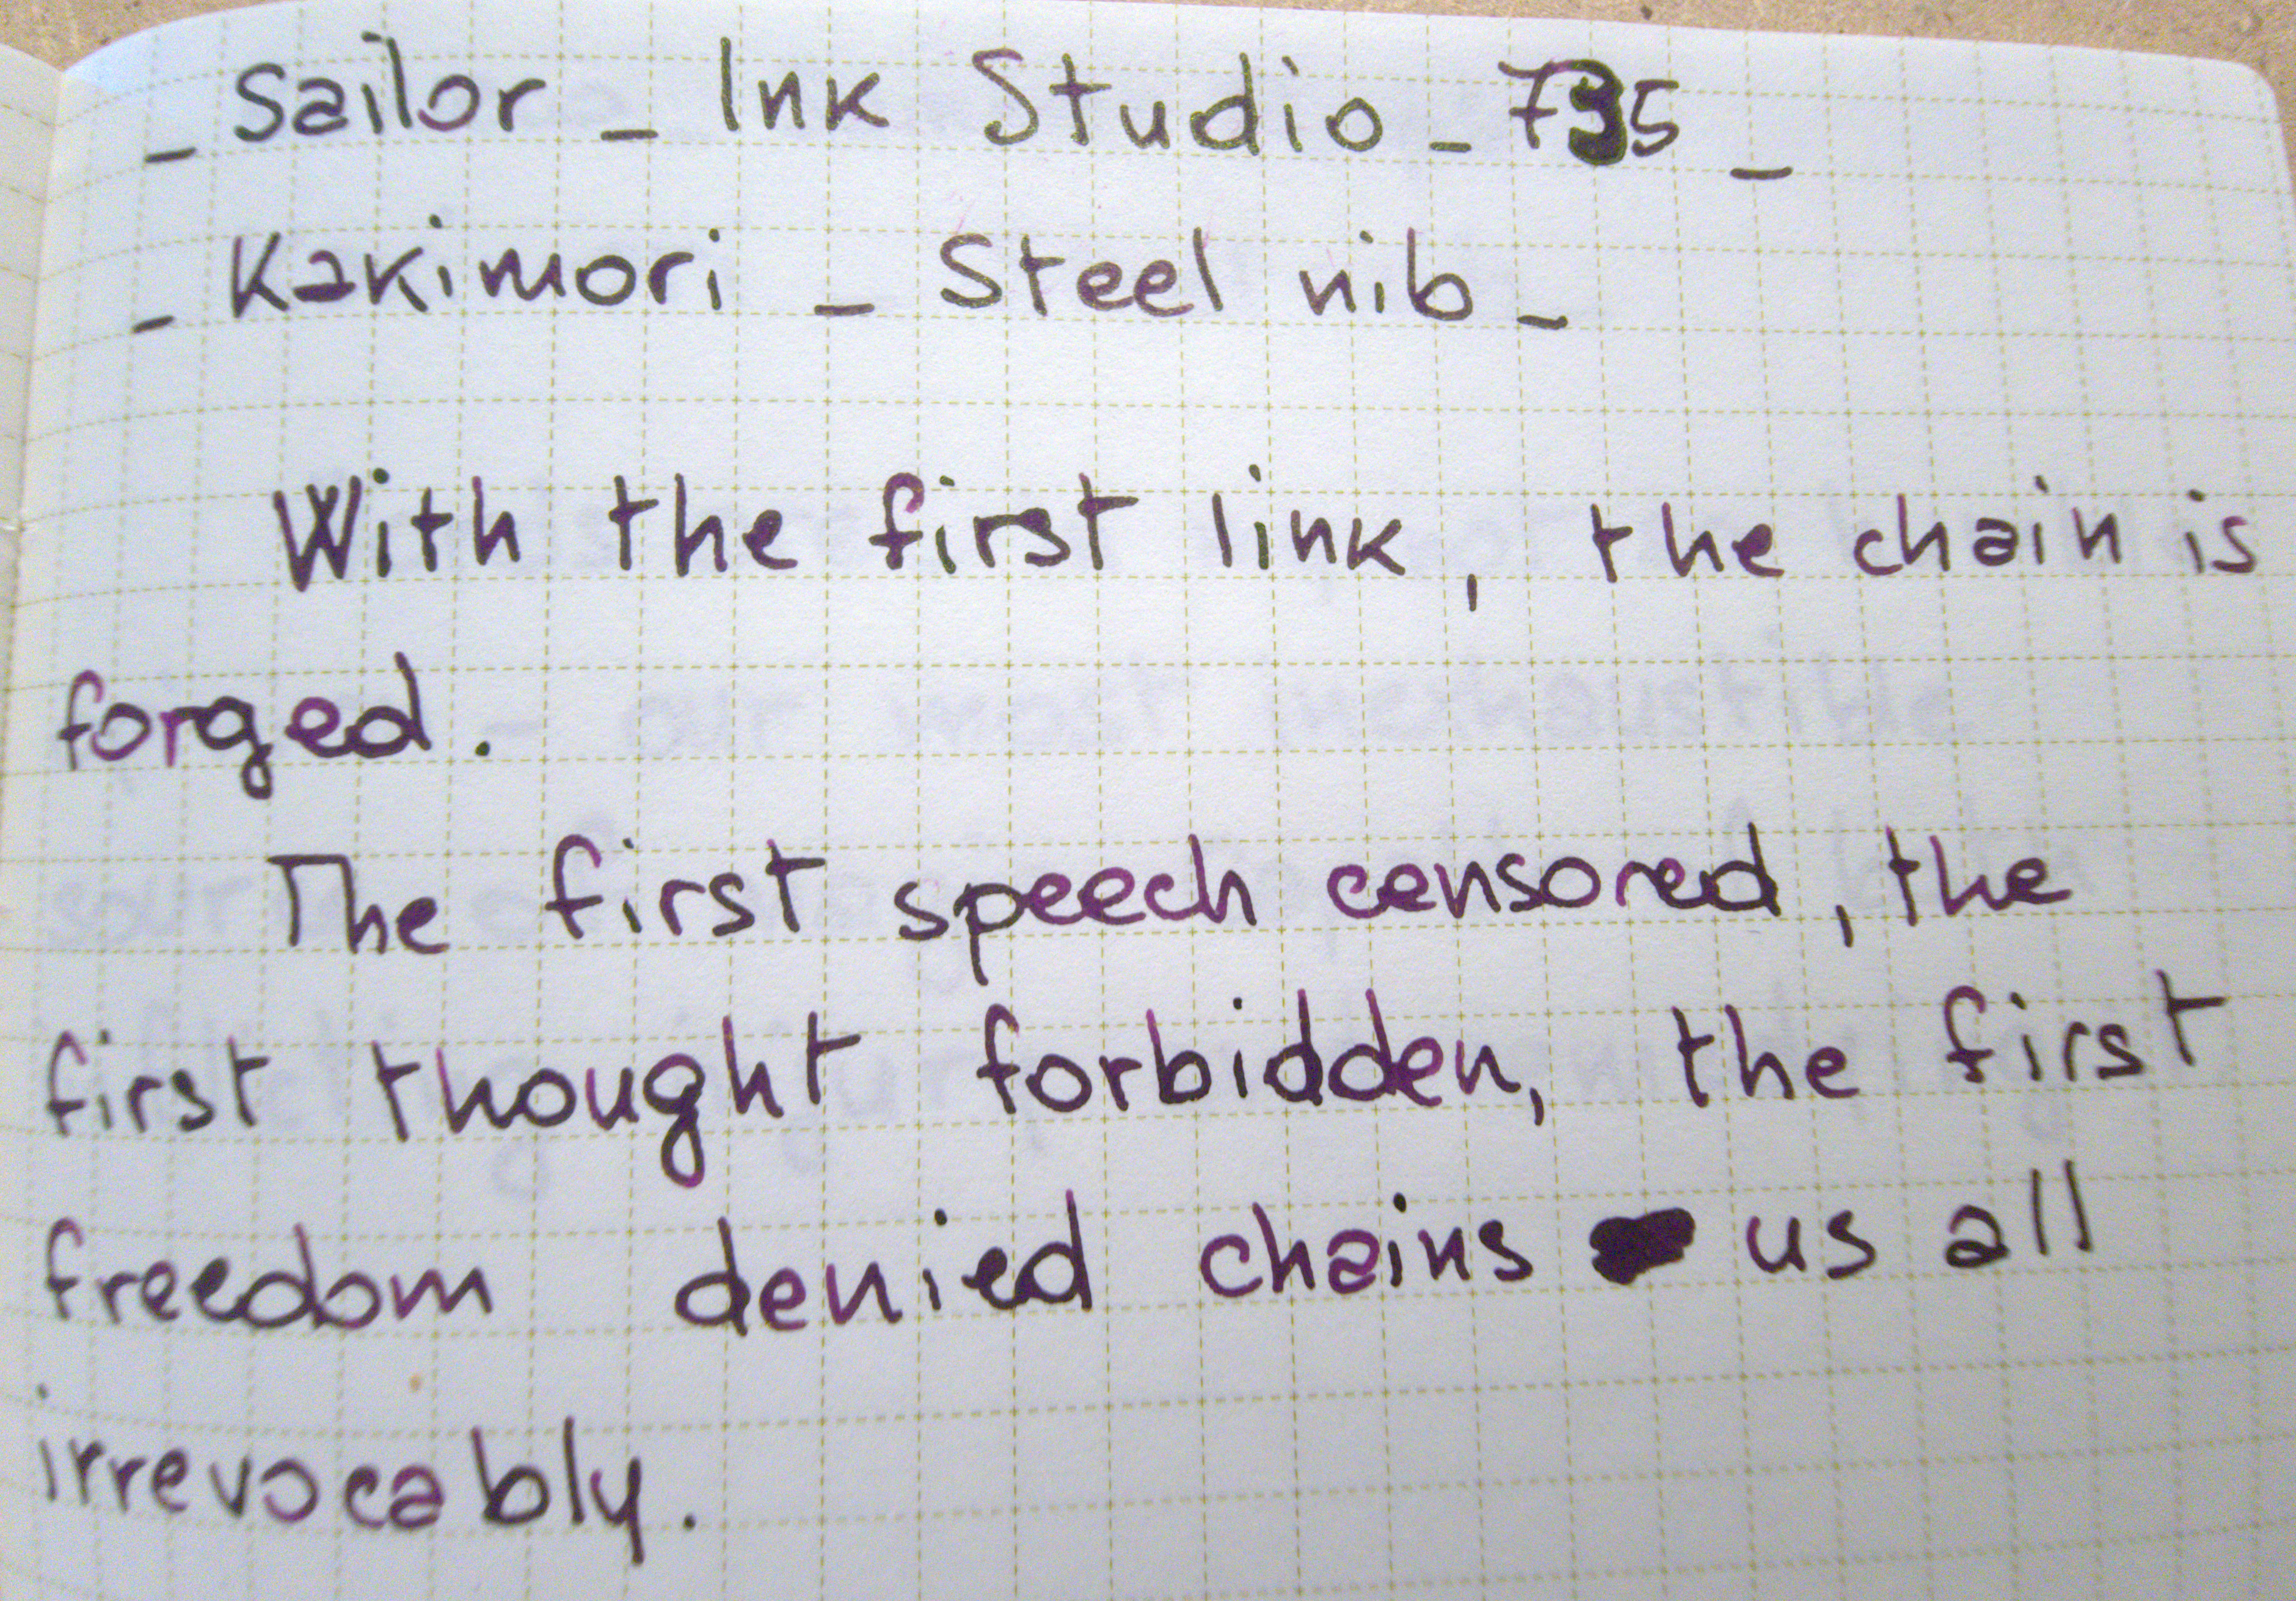 _ Sailor _ Ink Studio _ 735 _
_ Kakimori _ Steel nib _
With the first link, the chain is
forged.
The first speech censored, the
first thought forbidden, the first
freedom denied chains us all
irrevocably.